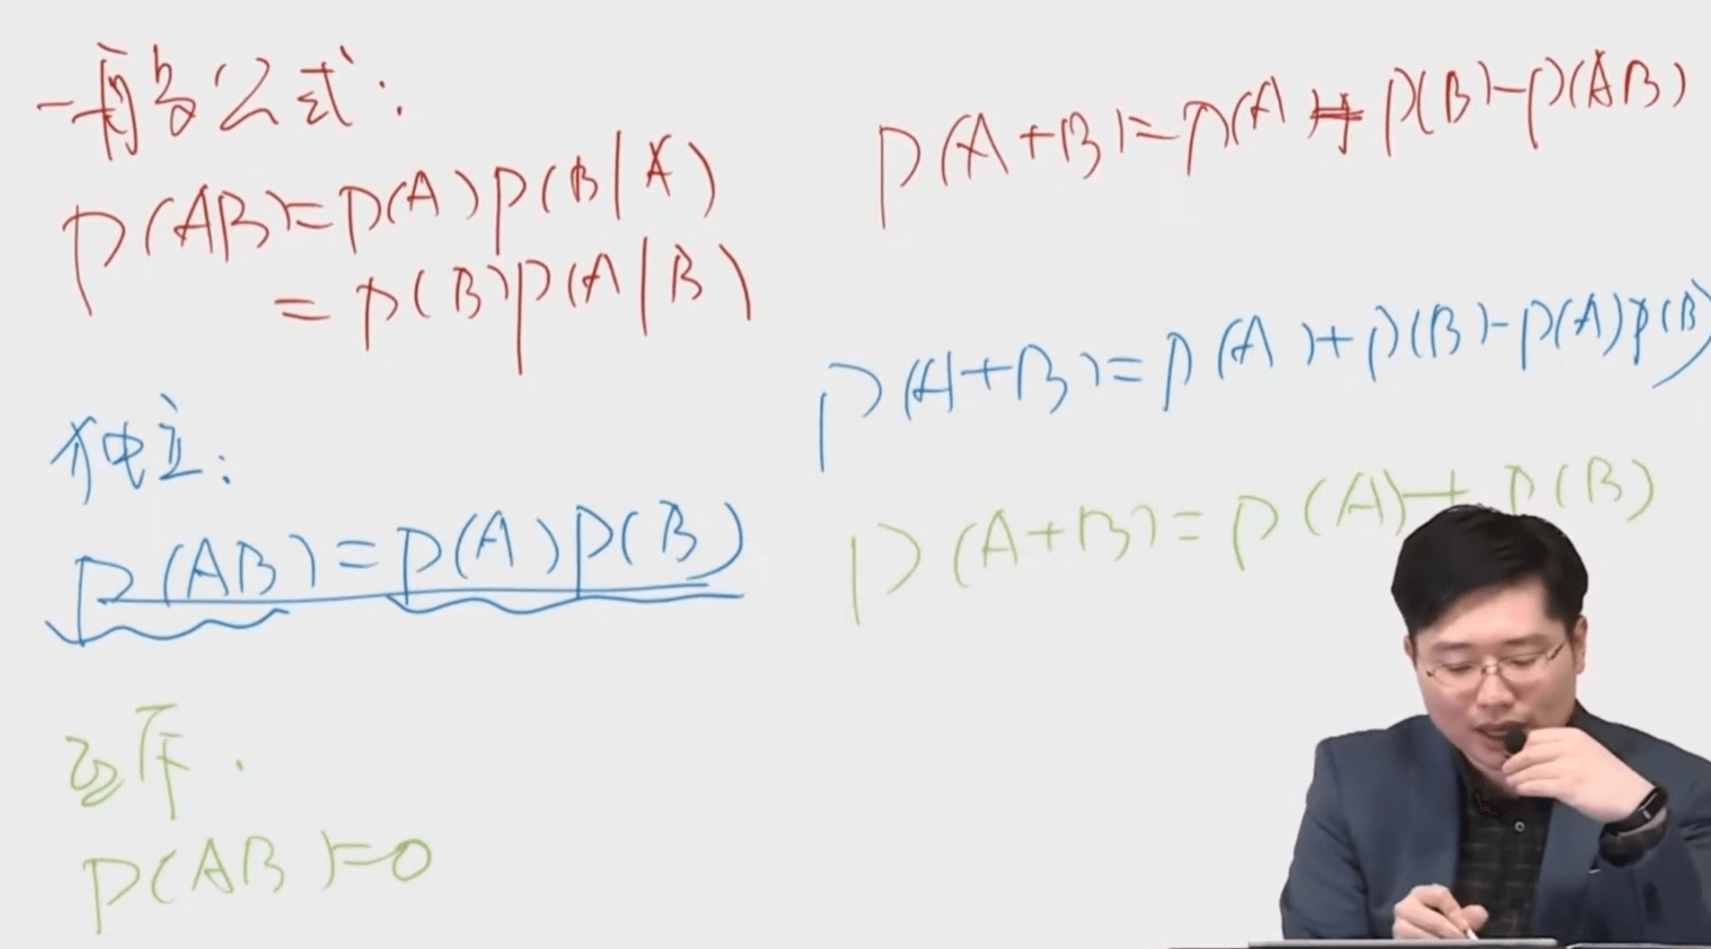 一般公式:
P(AB)=P(A)P(B|A)
=P(B)P(A|B)
P(A+B)=P(A)+P(B)-P(AB)
独立:
P(AB)=P(A)P(B)
P(A+B)=P(A)+P(B)-P(A)P(B)
互斥.
P(AB)=0
P(A+B)=P(A)+P(B)